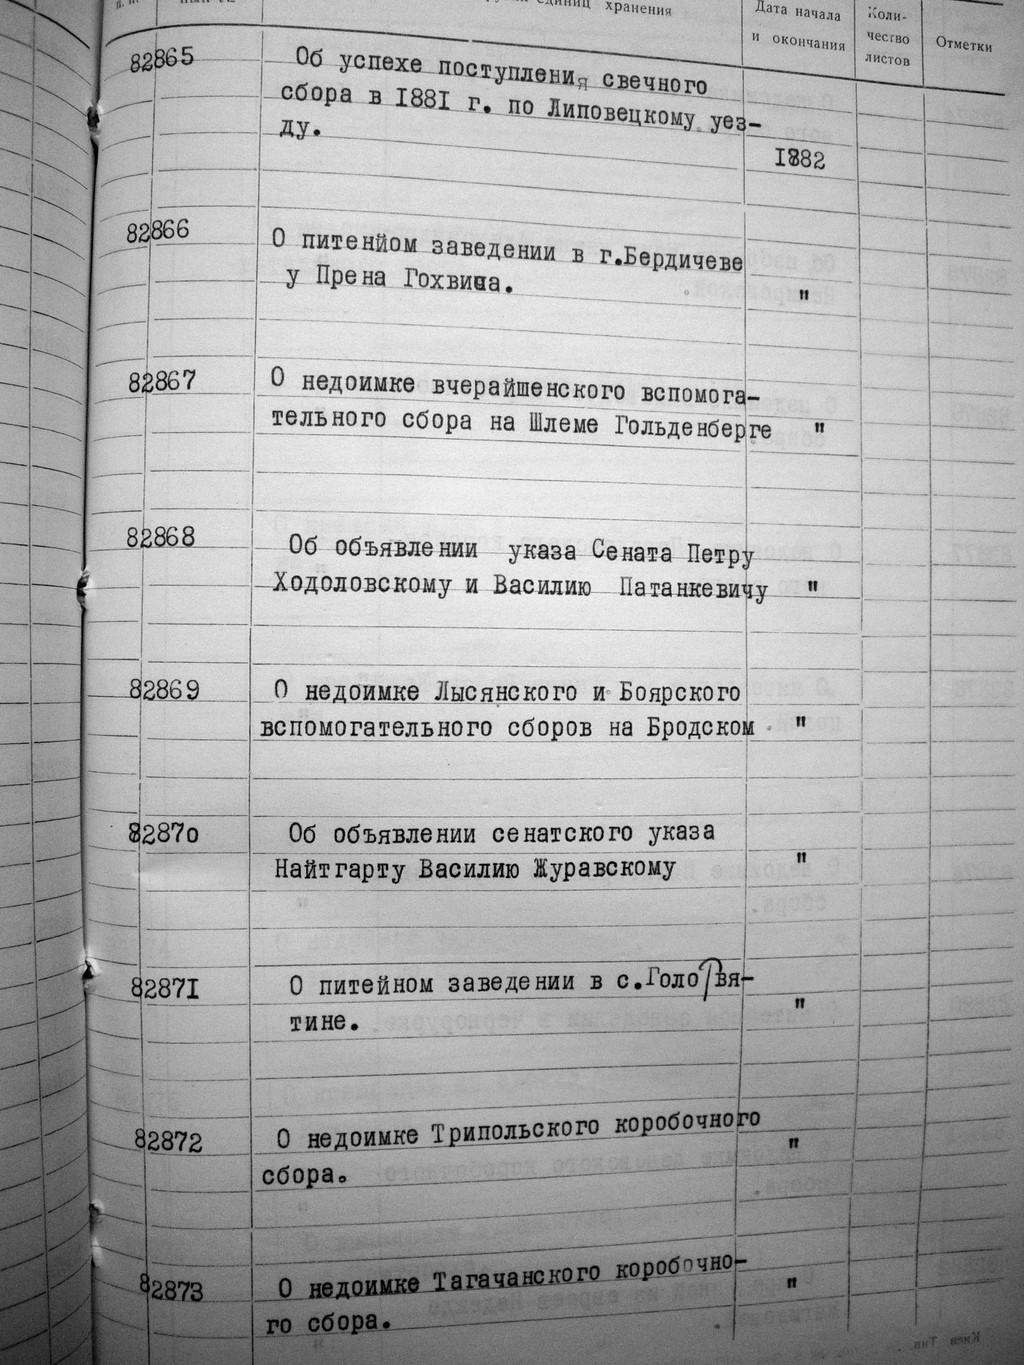 единиц хранения
Дата начала
и окончания
Коли-
чество
листов
Отметки
82865
Об успехе поступления свечного
сбора в I88I г. по Липовецкому уез-
ду.
I882
82866
О питейном заведении в г.Бердичеве
у Прена Гохвича.
"
82867
О недоимке вчерайшенского вспомога-
тельного сбора на Шлеме Гольденберге "
82868
Об объявлении указа Сената Петру
Ходоловскому и Василию Патанкевичу "
82869
О недоимке Лысянского и Боярского
вспомогательного сборов на Бродском "
82870
Об объявлении сенатского указа
Найтгарту Василию Журавскому "
8287I
О питейном заведении в с.Головя-
тине. "
82872
О недоимке Трипольского коробочного
сбора. "
82873
О недоимке Тагачанского коробочно-
го сбора. "